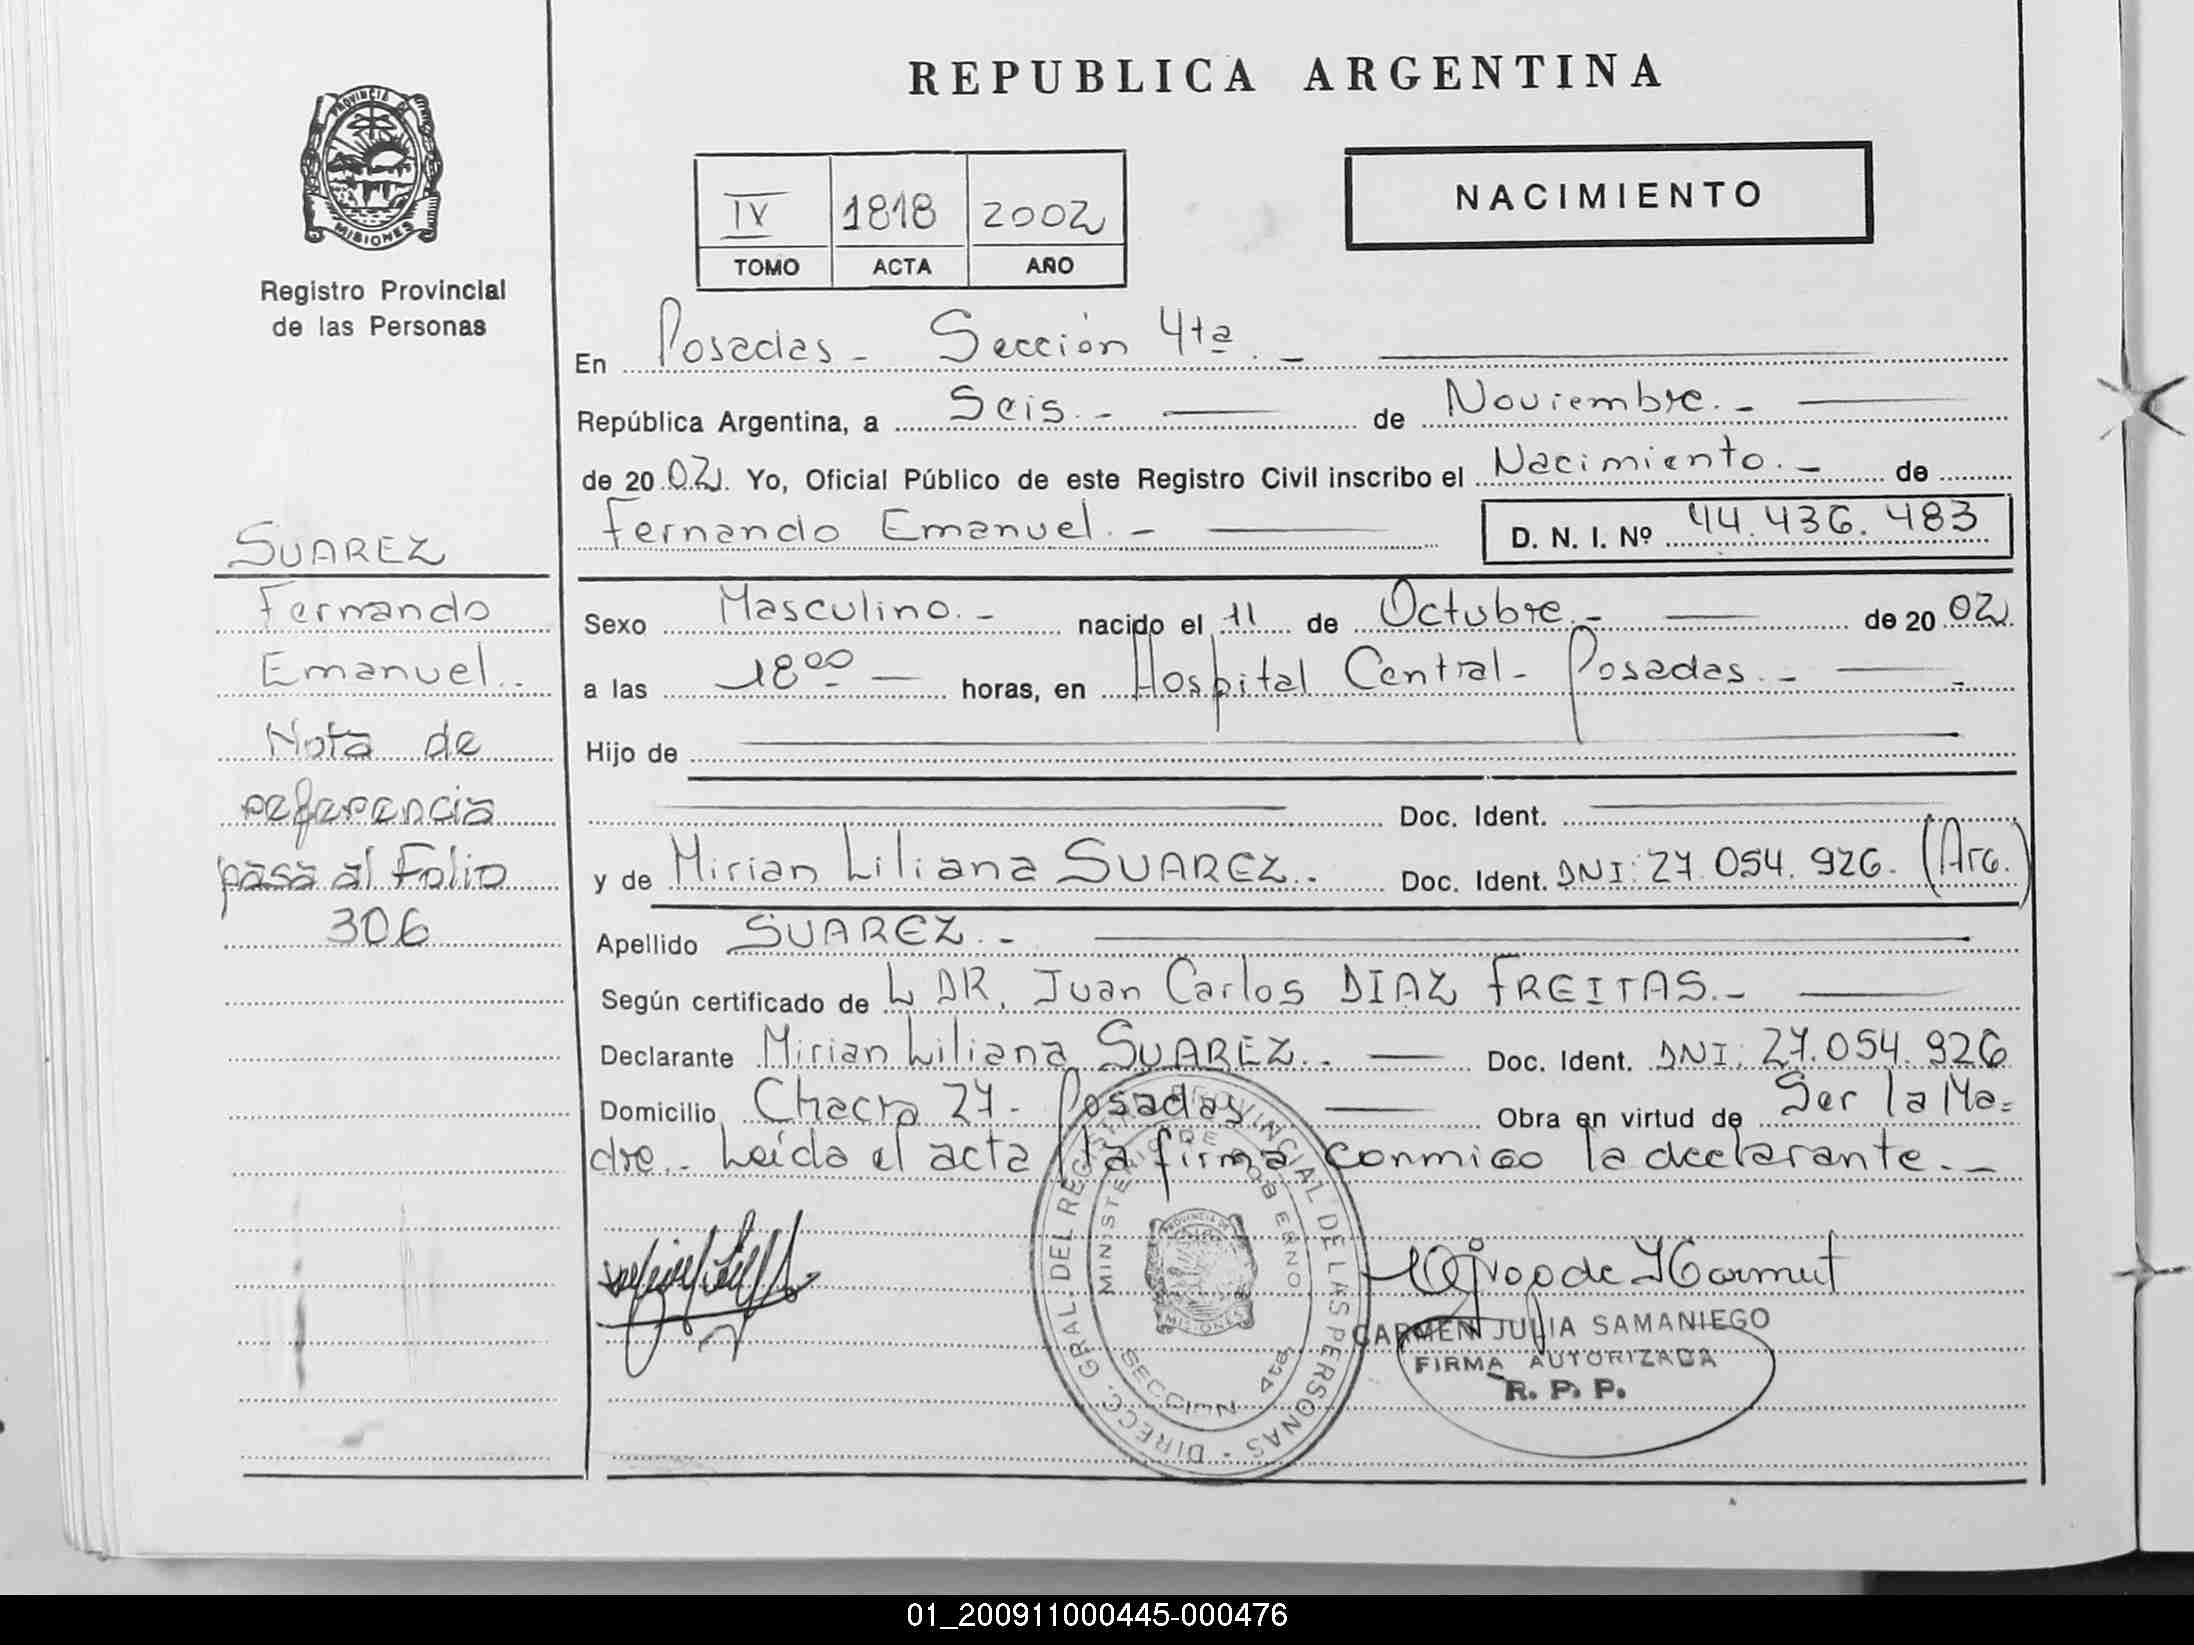 REPUBLICA ARGENTINA
PROVINCIA DE
MISIONES
Registro Provincial
de las Personas
NACIMIENTO
IV 1818 2002
TOMO ACTA AÑO
En Posadas - Sección 4ta. -
República Argentina, a Seis. - de Noviembre. -
de 20 02. Yo, Oficial Público de este Registro Civil inscribo el Nacimiento. - de
Fernando Emanuel. - D. N. I. Nº 44.436.483
SUAREZ
Fernando
Emanuel..
Nota de
referencia
pasa al Folio
306
Sexo Masculino. - nacido el 11 de Octubre. - de 20 02.
a las 18 00 horas, en Hospital Central - Posadas. -
Hijo de
Doc. Ident.
y de Mirian Liliana SUAREZ.. Doc. Ident. DNI: 27.054.926. (Arg.)
Apellido SUAREZ. -
Según certificado de L DR. Juan Carlos DIAZ FREITAS. -
Declarante Mirian Liliana SUAREZ.. Doc. Ident. DNI: 27.054.926
Domicilio Chacra 27 - Posadas Obra en virtud de Ser la Ma=
dre.. Leída el acta la firma conmigo la declarante. -
DIRECC. GRAL. DEL REGISTRO PROVINCIAL DE LAS PERSONAS -
MINISTERIO DE GOBIERNO
PROVINCIA DE
MISIONES
SECCION 4ta.
CARMEN JULIA SAMANIEGO
FIRMA AUTORIZADA
R. P. P.
01_200911000445-000476